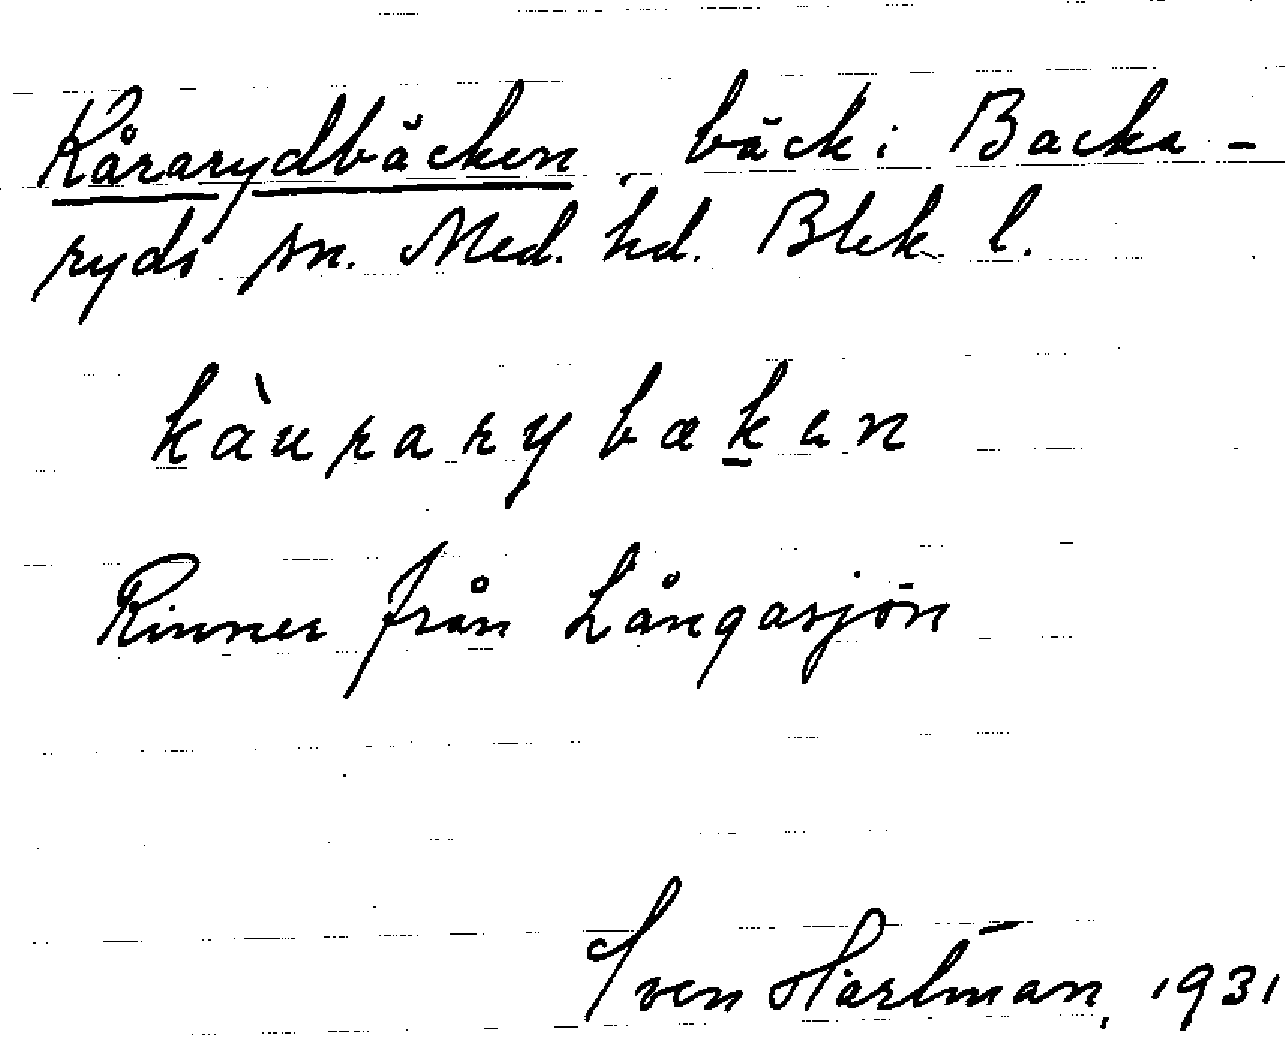 Kårarydbäcken, bäck i Backa-
ryds sn. Med. hd. Blek. l.
kàurarybækan
Rinner från Långasjön
Sven Hartman, 1931